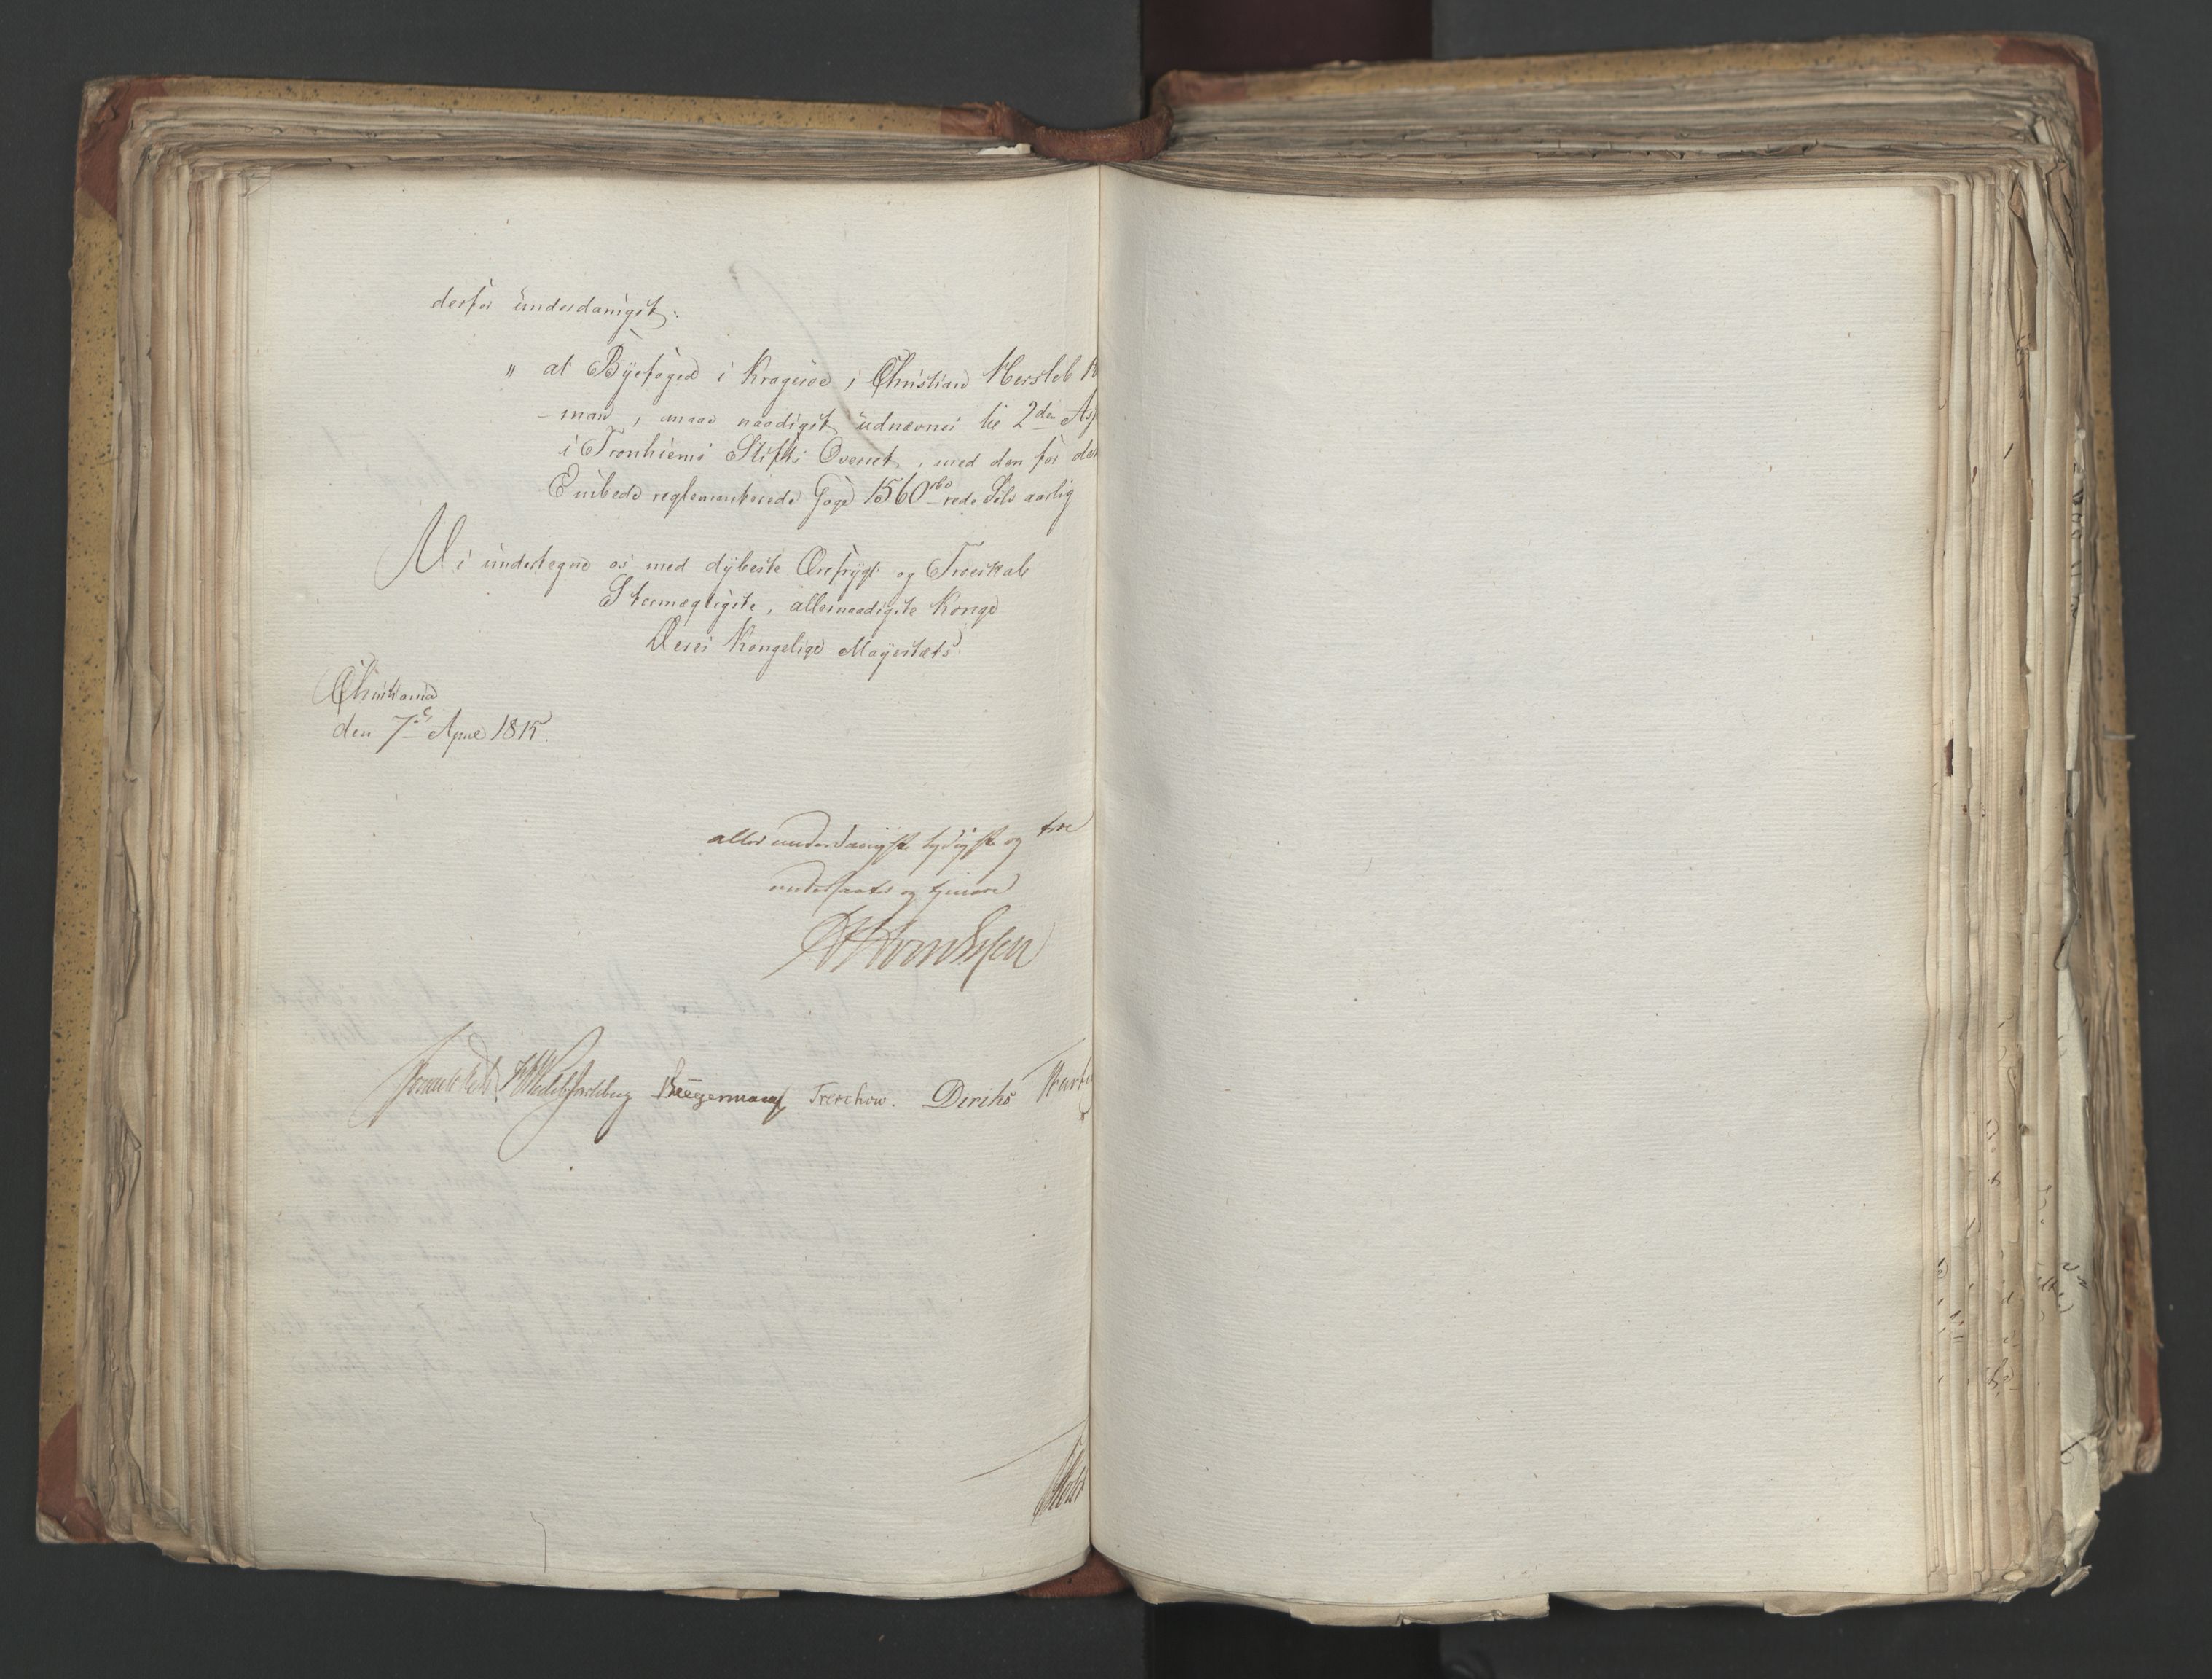 derfor underdanigst:
" at Byefoged i Kragerøe, Christian Hersleb H
-man, maae naadigst udnævnes til 2den As
i Tronhiems Stifts Overret, med den for det
Embede reglementerede Gage 1560 rbd rede Sølv aarlig
Vi undertegne os med dybeste Ærefrygt og Troeskab
Stormægtigste, allernaadigste Konge
Deres Kongelige Mayestæts
Christiania
den 7de April 1815.
allerunderdanigste lydigste og troe
undersaatter og tjenere
Sommerhielm HWedel Jarlsberg Krieger Treschow. Diriks